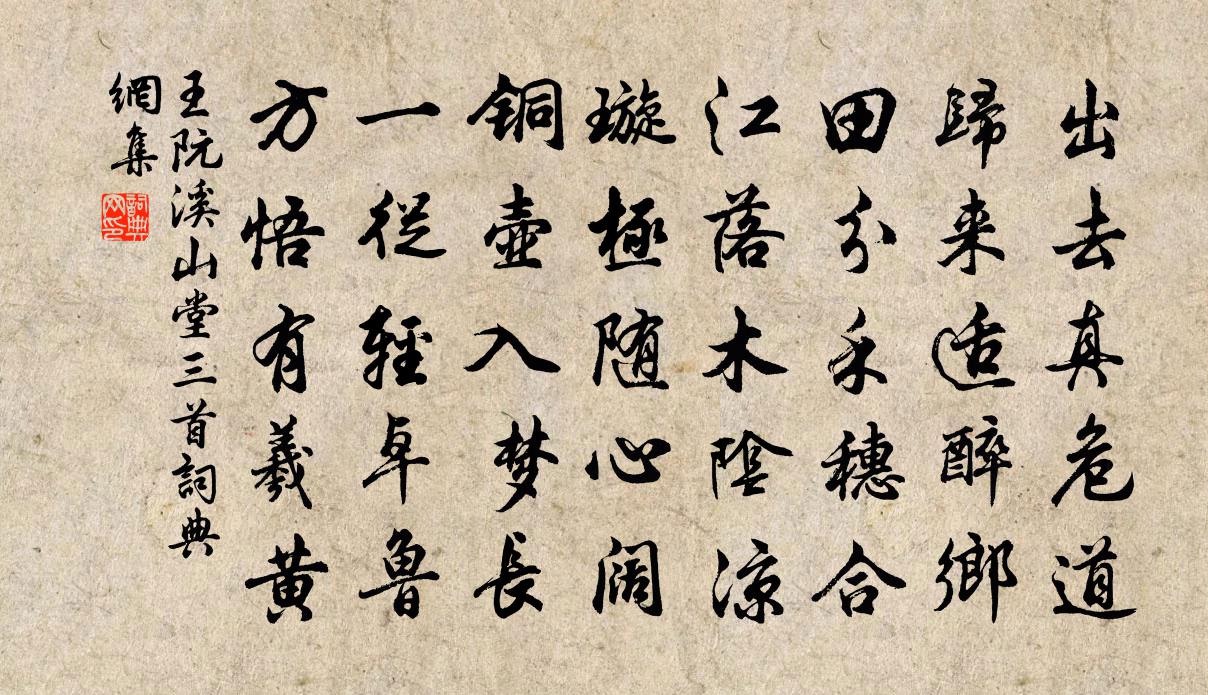 出去真危道
歸来适醉鄉
田分禾穗合
江落木陰涼
璇極随心阔
铜壺入梦長
一從輕卓魯
方悟有羲黄
王阮溪山堂三首詞典
網集
詞典
网印